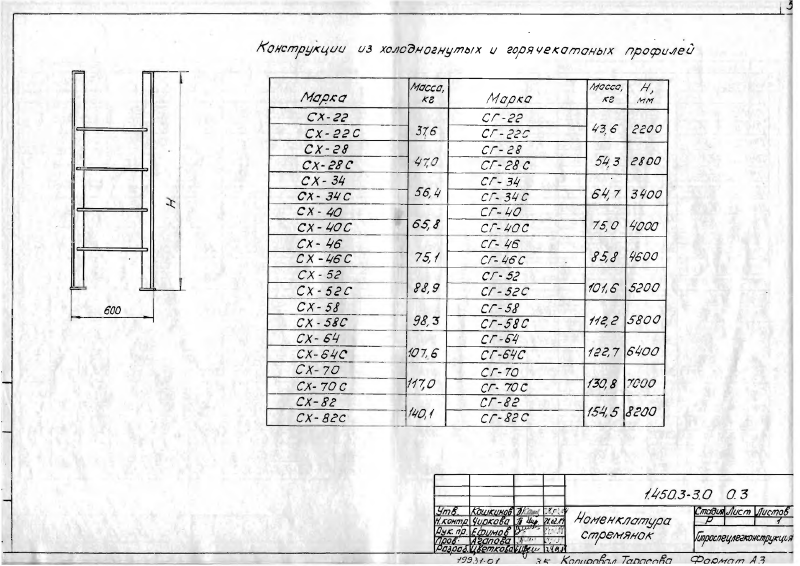 3
Конструкции из холодногнутых и горячекатаных профилей
Марка Масса, кг Марка Масса, кг Н, мм
СХ-22 СГ-22
СХ-22С 37,6 СГ-22С 43,6 2200
СХ-28 СГ-28
СХ-28С 47,0 СГ-28С 54,3 2800
СХ-34 СГ-34
СХ-34С 56,4 СГ-34С 64,7 3400
СХ-40 СГ-40
СХ-40С 65,8 СГ-40С 75,0 4000
СХ-46 СГ-46
СХ-46С 75,1 СГ-46С 85,8 4600
СХ-52 СГ-52
СХ-52С 88,9 СГ-52С 101,6 5200
СХ-58 СГ-58
СХ-58С 98,3 СГ-58С 112,2 5800
СХ-64 СГ-64
СХ-64С 107,6 СГ-64С 122,7 6400
СХ-70 СГ-70
СХ-70С 117,0 СГ-70С 130,8 7000
СХ-82 СГ-82
СХ-82С 140,1 СГ-82С 154,5 8200
Н
600
1.450.3-3.0 0.3
Утв. Кошкинов
Н.контр. Чиркова
Рук.пр. Ефимов
Пров. Агапова
Разраб. Цветкова
Номенклатура
стремянок
Стадия Лист Листов
Р 1
Гипроспецлегконструкция
19931-01 3К Копировал Тарасова Формат А3